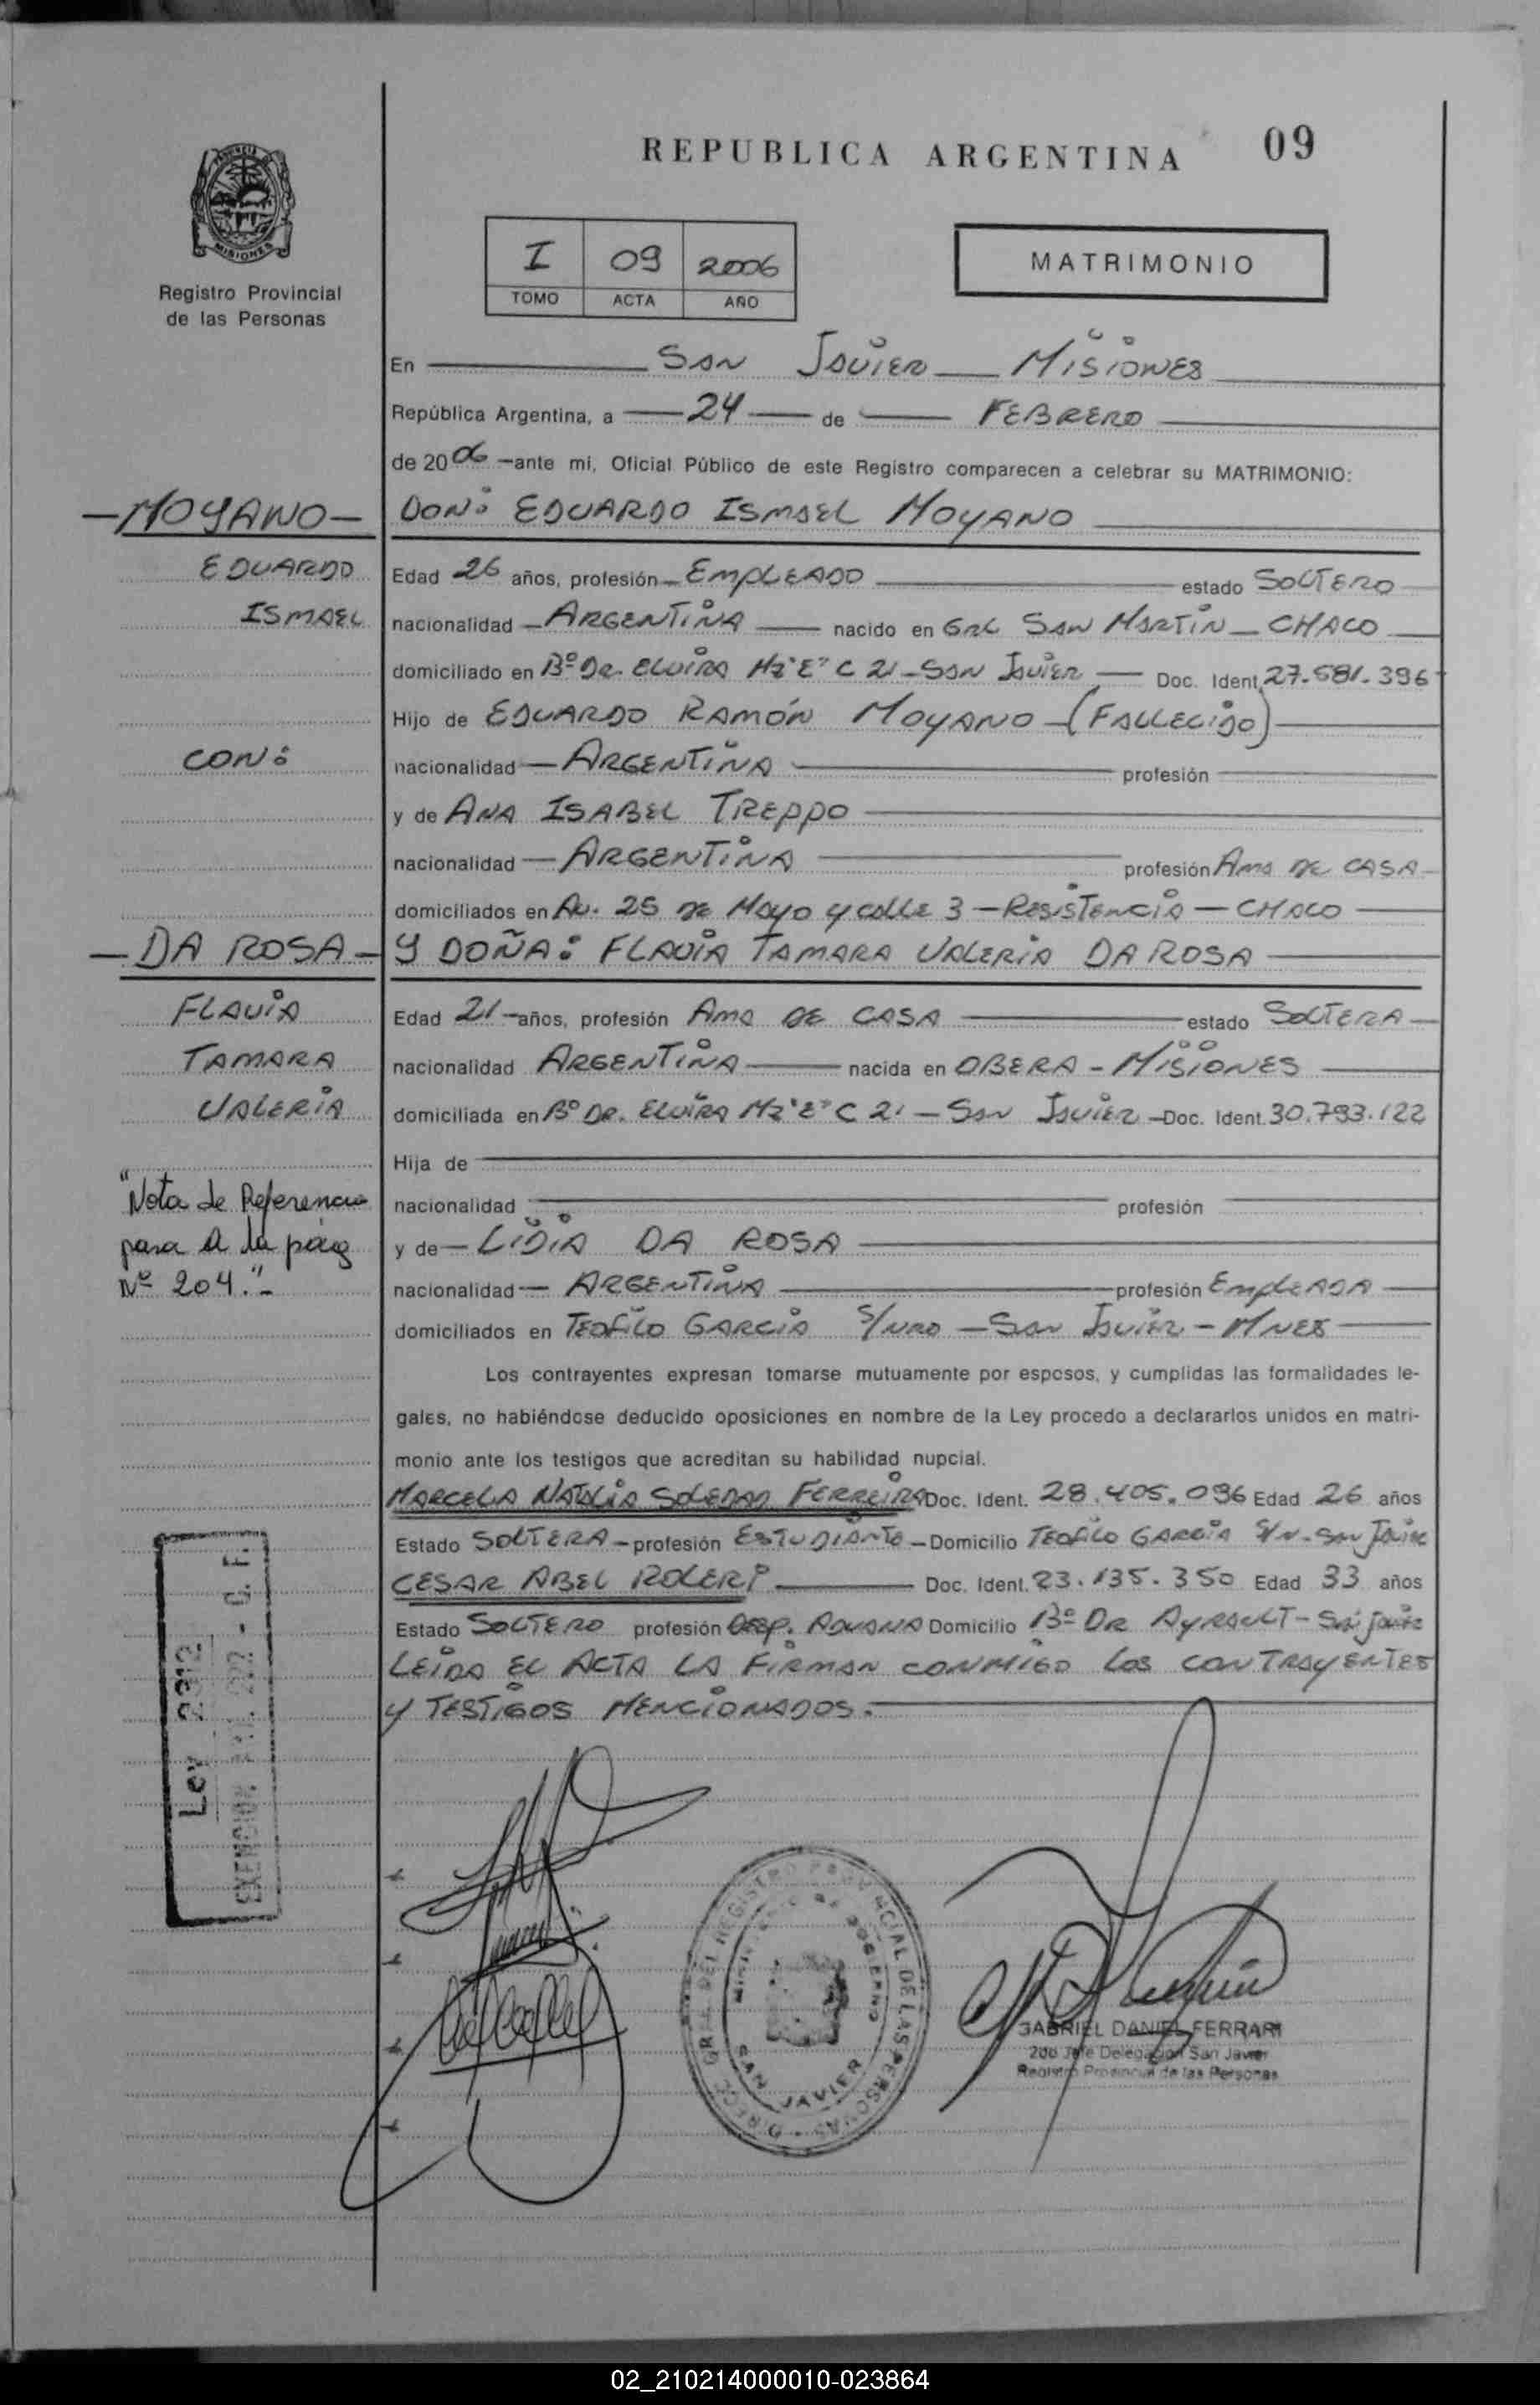 REPUBLICA ARGENTINA 09
PROVINCIA DE
MISIONES
Registro Provincial
de las Personas
I 09 2006
TOMO ACTA AÑO
MATRIMONIO
En SAN JAVIER MISIONES
República Argentina, a 24 de FEBRERO
de 2006 -ante mi, Oficial Público de este Registro comparecen a celebrar su MATRIMONIO:
-MOYANO- DON: EDUARDO ISMAEL MOYANO
EDUARDO Edad 26 años, profesión EMPLEADO estado SOLTERO
ISMAEL nacionalidad ARGENTINA nacido en GRL SAN MARTIN - CHACO
domiciliado en Bº DR. ELVIRA MZ "E" C 21 - SAN JAVIER Doc. Ident. 27.581.396
Hijo de EDUARDO RAMÓN MOYANO (FALLECIDO)
CON: nacionalidad ARGENTINA profesión
y de ANA ISABEL TREPPO
nacionalidad ARGENTINA profesión AMA DE CASA
domiciliados en AV. 25 DE MAYO Y CALLE 3 - RESISTENCIA - CHACO
-DA ROSA- Y DOÑA: FLAVIA TAMARA VALERIA DA ROSA
FLAVIA Edad 21 años, profesión AMA DE CASA estado SOLTERA
TAMARA nacionalidad ARGENTINA nacida en OBERA - MISIONES
VALERIA domiciliada en Bº DR. ELVIRA MZ "E" C 21 - SAN JAVIER Doc. Ident. 30.793.122
Hija de
"Nota de Referencia nacionalidad profesión
pasa a la pág y de LIDIA DA ROSA
Nº 204."- nacionalidad ARGENTINA profesión EMPLEADA
domiciliados en TEOFILO GARCIA S/NRO - SAN JAVIER - MNES
Los contrayentes expresan tomarse mutuamente por esposos, y cumplidas las formalidades le-
gales, no habiéndose deducido oposiciones en nombre de la Ley procedo a declararlos unidos en matri-
monio ante los testigos que acreditan su habilidad nupcial.
MARCELA NATALIA SOLEDAD FERREIRA Doc. Ident. 28.405.096 Edad 26 años
Estado SOLTERA - profesión ESTUDIANTE - Domicilio TEOFILO GARCIA S/N - SAN JAVIER
CESAR ABEL ROLERI Doc. Ident. 23.135.350 Edad 33 años
Estado SOLTERO profesión DESP. ADUANA Domicilio Bº DR AYRAULT - SAN JAVIER
LEIDA EL ACTA LA FIRMAN CONMIGO LOS CONTRAYENTES
Y TESTIGOS MENCIONADOS.
Ley 2312
EXENCION
DIRECC. GRAL. DEL REGISTRO PROVINCIAL DE LAS PERSONAS
MINISTERIO DE GOBIERNO
SAN JAVIER
GABRIEL DANIEL FERRARI
2do Jefe Delegación San Javier
Registro Provincial de las Personas
02_210214000010-023864